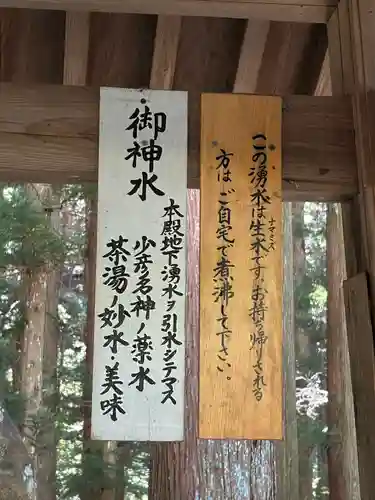 この湧水は生水です。お持ち帰りされる
ナマミズ
方は、ご自宅で煮沸して下さい。
御神水
本殿地下湧水ヲ引水シテマス
少彦名神ノ薬水
茶湯ノ妙水・美味